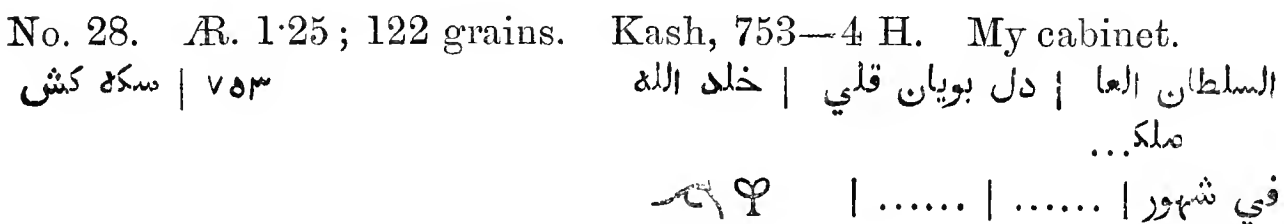 No. 28. Æ. 1·25; 122 grains. Kash, 753—4 H. My cabinet.
السلطان العا | دل بويان قلي | خلد الله
ملكـ...
سكه كش | ٧٥٣
في شهور | ...... | ...... |